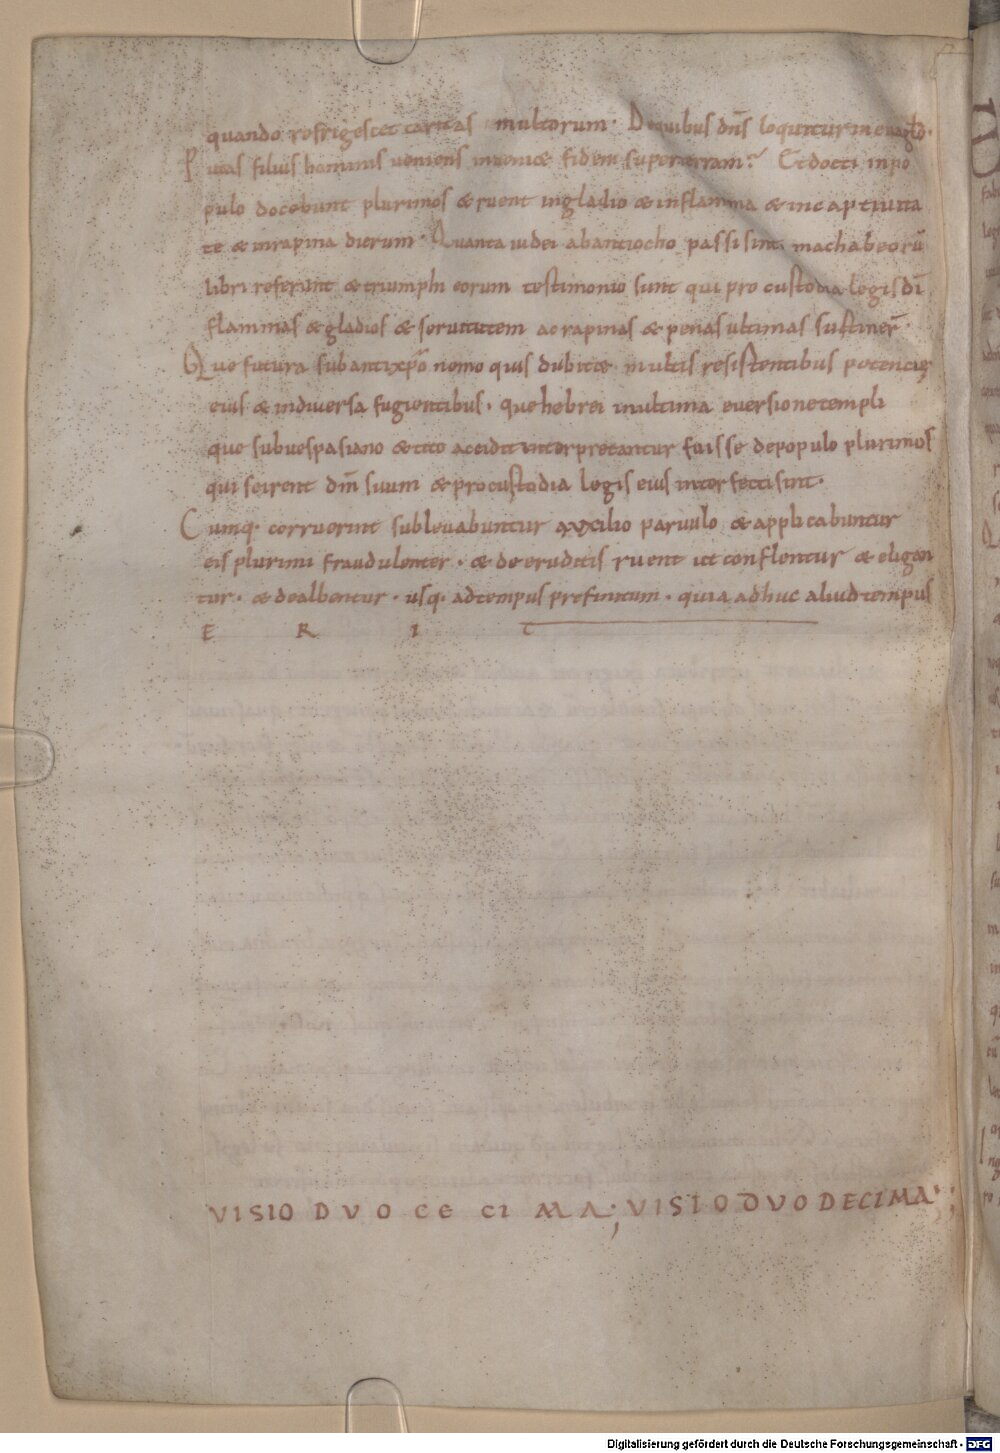 quando refrigescet caritas multorum. De quibus dn̄s loquitur in euaglo.
Putas filius hominis ueniens inueniæ fidem super terram? Et docti in po
pulo docebunt plurimos & ruent in gladio & in flamma & in captiuita
te & in rapina dierum. Quanta iudei ab antiocho passi sint machabeorū
libri referunt & triumphi eorum testimonio sunt qui pro custodia legis dī
flammas & gladios & seruitutem ac rapinas & penas ultimas sustiner̄.
Que futura sub antixpo nemo quis dubitæ multis resistentibus potencię
eius & in diuersa fugientibus. que hebrei in ultima euersione templi
que sub uespasiano & tito accidit interpretantur fuisse de populo plurimos
qui scirent dm̄ suum & pro custodia legis eius interfecti sint.
Cumq. corruerint subleuabuntur auxilio paruulo & applicabuntur
eis plurimi fraudulenter. & de eruditis ruent ut conflentur & eligan
tur. & dealbentur. usq. ad tempus prefinitum. quia adhuc aliud tempus
E R I T
VISIO DVO CE CI MA; VISIO DVODECIMA;
Digitalisierung gefördert durch die Deutsche Forschungsgemeinschaft - DFG